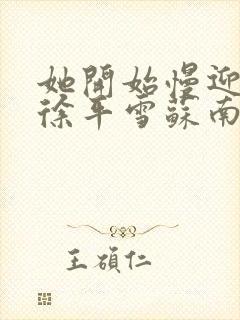 她開始慢迎
徐平雪蘇南
王碩仁